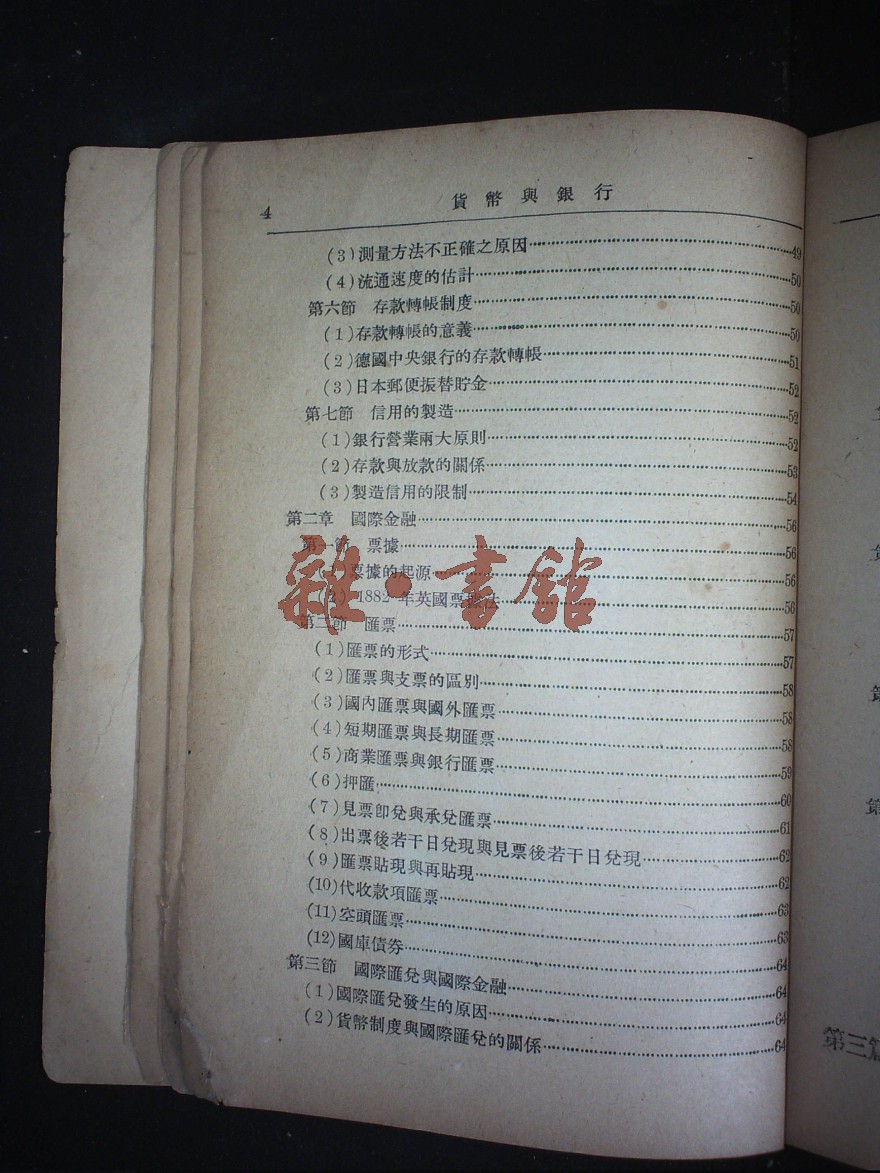 4
貨幣與銀行
(3)測量方法不正確之原因……49
(4)流通速度的估計……50
第六節 存款轉帳制度……50
(1)存款轉帳的意義……50
(2)德國中央銀行的存款轉帳……51
(3)日本郵便振替貯金……52
第七節 信用的製造……52
(1)銀行營業兩大原則……52
(2)存款與放款的關係……53
(3)製造信用的限制……54
第二章 國際金融……56
第一節 票據……56
票據的起源……56
(2) 1882年英國票據法……56
第二節 匯票……57
(1)匯票的形式……57
(2)匯票與支票的區別……58
(3)國內匯票與國外匯票……58
(4)短期匯票與長期匯票……58
(5)商業匯票與銀行匯票……59
(6)押匯……60
(7)見票卽兌與承兌匯票……61
(8)出票後若干日兌現與見票後若干日兌現……62
(9)匯票貼現與再貼現……62
(10)代收款項匯票……63
(11)空頭匯票……63
(12)國庫債券……64
第三節 國際匯兌與國際金融……64
(1)國際匯兌發生的原因……64
(2)貨幣制度與國際匯兌的關係……64
雜·書館
第三篇